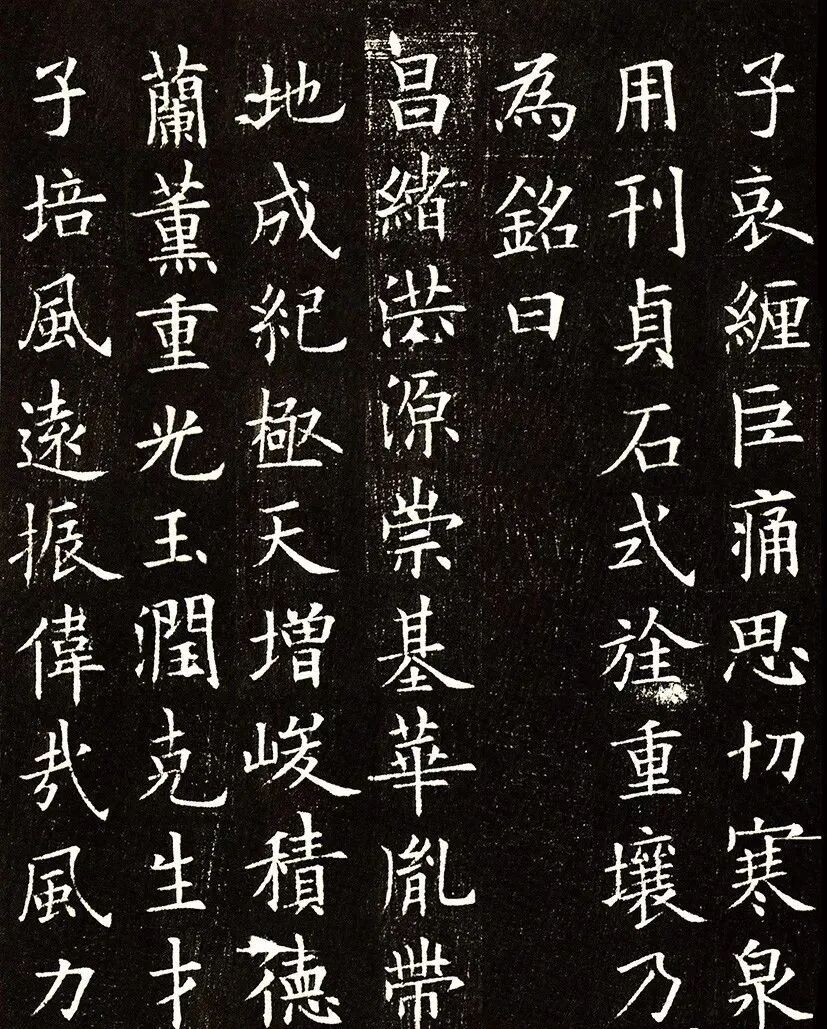 子哀纏巨痛思切寒泉
用刊貞石式旌重壤乃
為銘曰
昌緒洪源崇基華胤帶
地成紀極天增峻積德
蘭薫重光玉潤克生才
子培風遠振偉哉風力